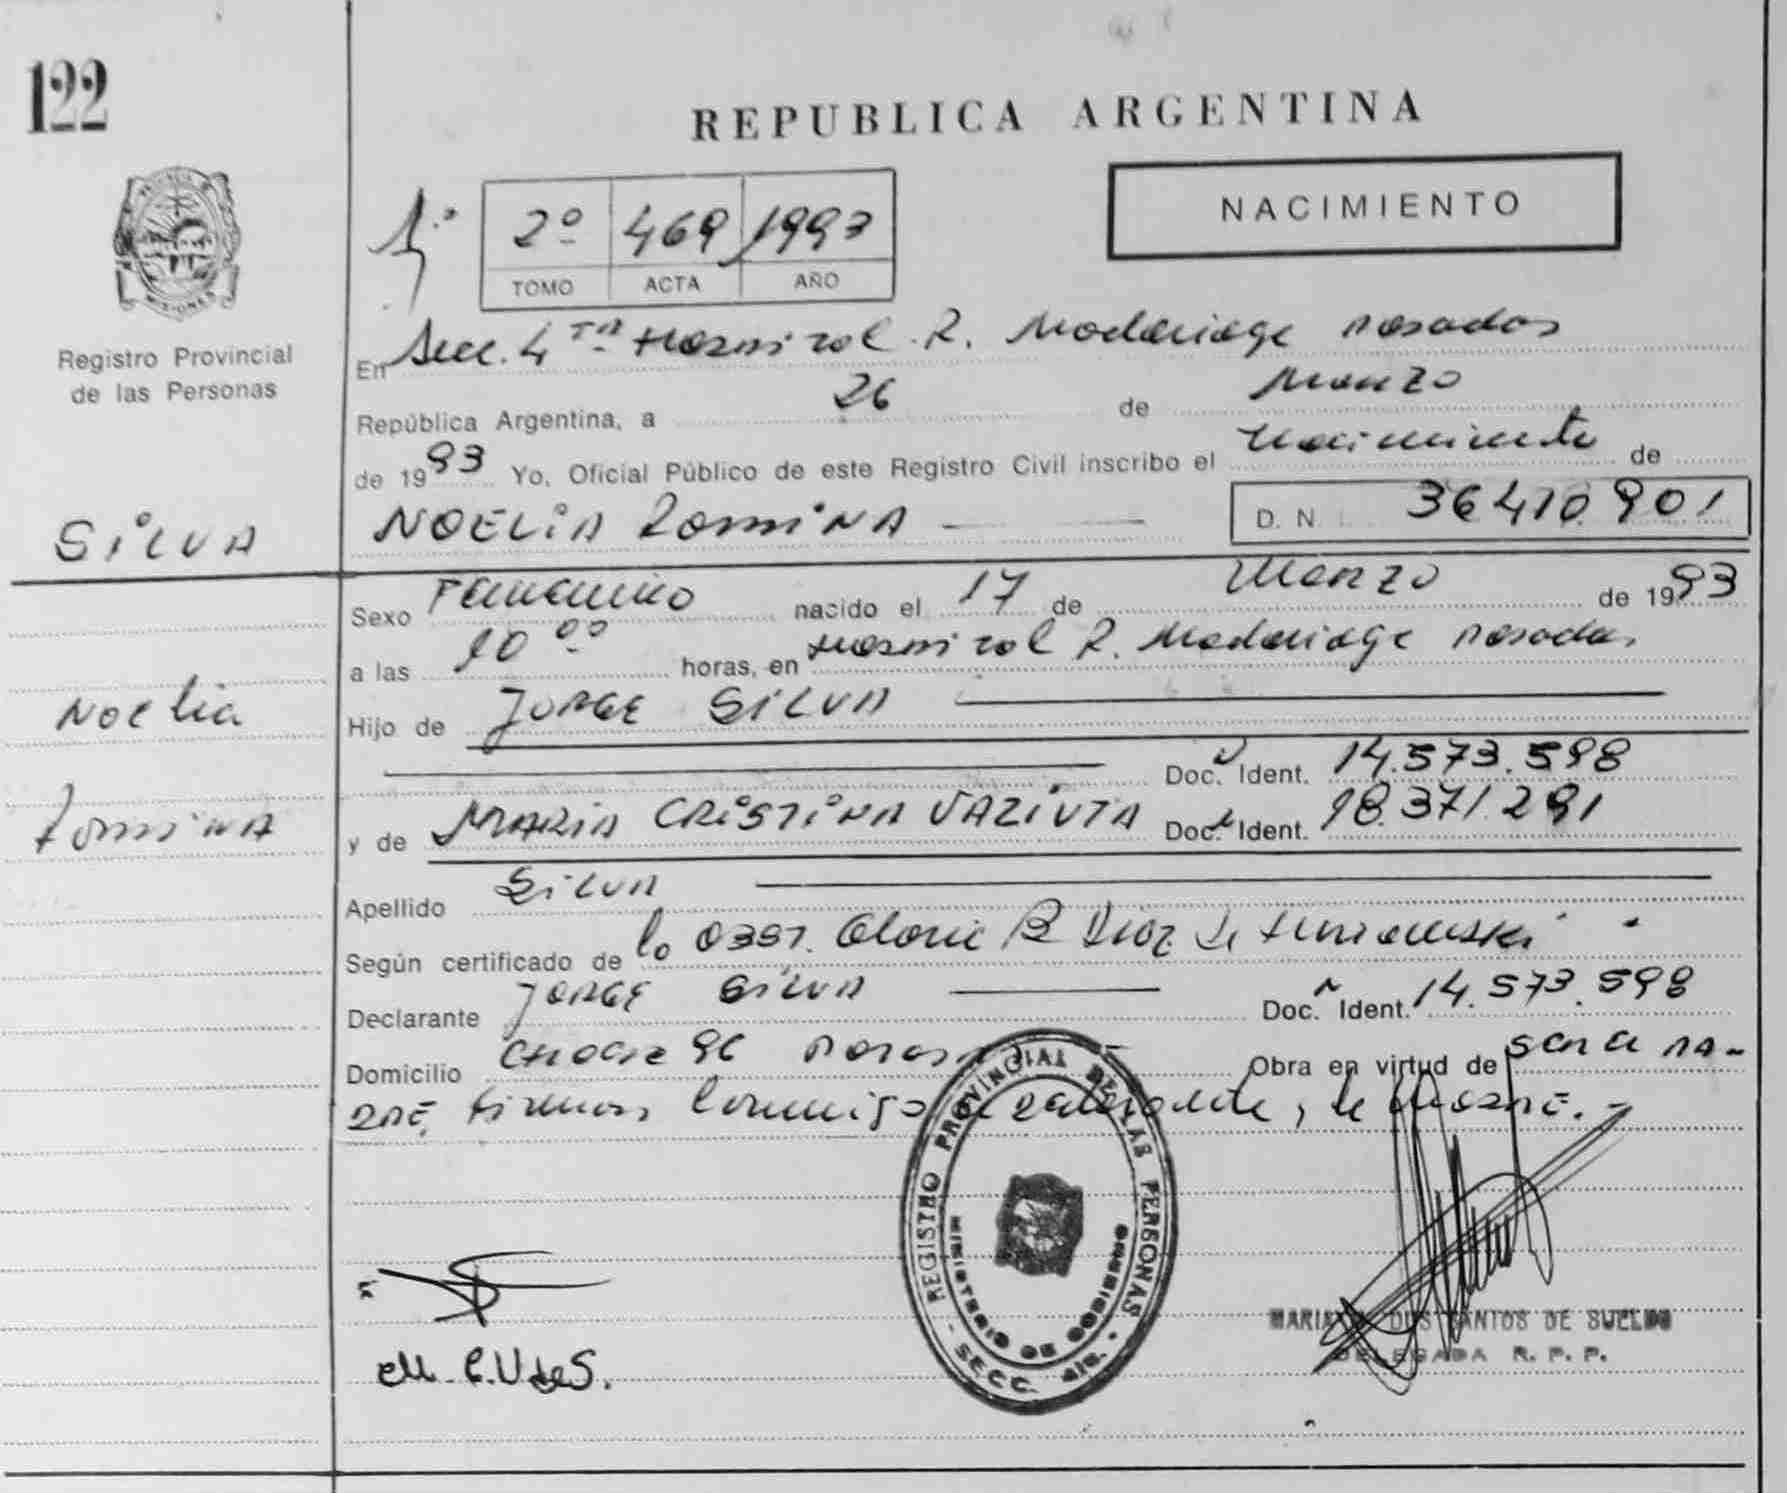 122
REPUBLICA ARGENTINA
NACIMIENTO
1º
2º 469 1993
TOMO ACTA AÑO
PROVINCIA DE MISIONES
Registro Provincial
de las Personas
En Secc. 4ta Hospital R. Madariaga Posadas
República Argentina, a 26 de Marzo
de 1993 Yo, Oficial Público de este Registro Civil inscribo el Nacimiento de
SILVA
NOELIA ROMINA
D. N. I. 36410.901
Sexo Femenino nacido el 17 de Marzo de 1993
a las 10 00 horas, en Hospital R. Madariaga Posadas
Noelia
Romina
Hijo de JORGE SILVA
Doc. Ident. 14.573.598
y de MARIA CRISTINA Doc. Ident. 18.371.291
Apellido SILVA
Según certificado de la Obst. Gloria B Diaz de
Declarante JORGE SILVA Doc. Ident. 14.573.598
Domicilio 96 Posadas Obra en virtud de ser el pa-
dre, firman conmigo
M. C. V de S.
REGISTRO PROVINCIAL DE LAS PERSONAS
MINISTERIO DE GOBIERNO
- SECC. 4ta. -
DOS SANTOS DE SUELDO
DELEGADA R. P. P.